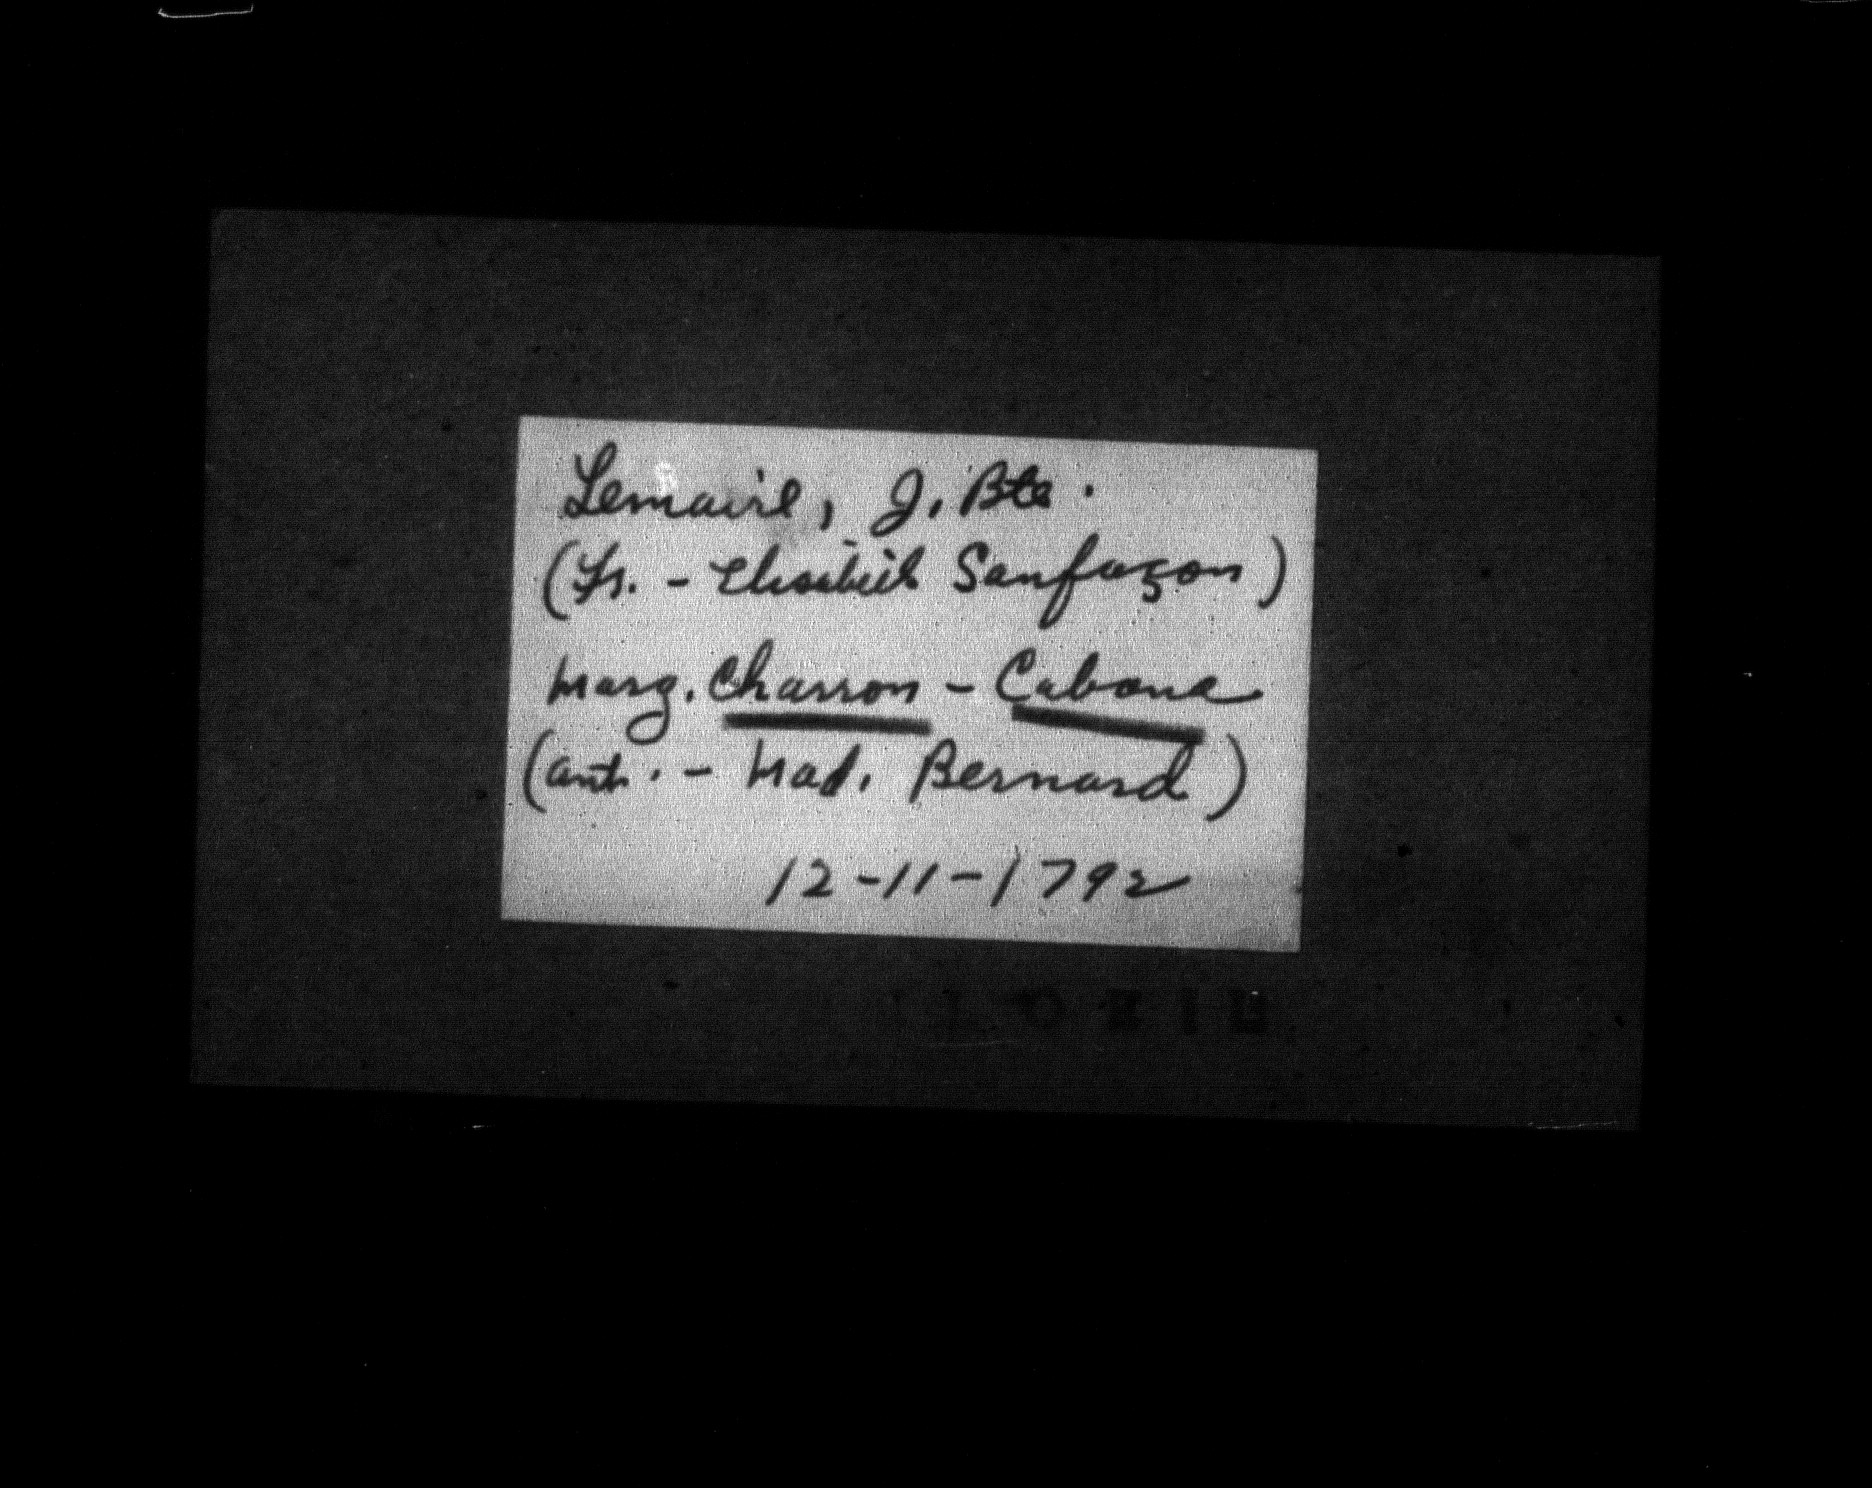 Lemaire, J. Bte.
(Fr. - Elisabeth Sanfaçon)
Marg. Charron - Cabana
(Ant. - Mad. Bernard)
12-11-1792